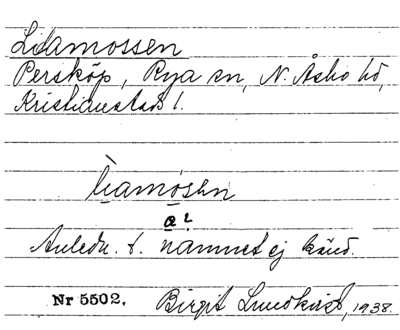 Liamossen
Persköp, Rya sn, N. Åsbo hd,
Kristianstads l.
lìamósen
a?
Anledn. t. namnet ej känd.
Nr 5502. Birgit Lundkvist, 1938.